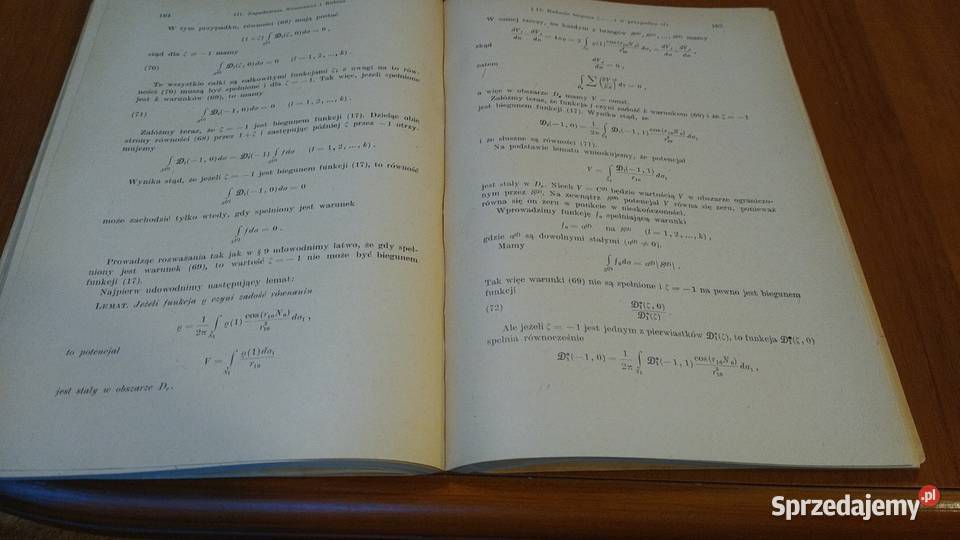 164
III. Zagadnienia Neumanna i Robina
W tym przypadku, równości (68) mają postać
(1+ζ) ∫ 𝔇₁(ζ, 0)dσ = 0 ,
stąd dla ζ = −1 mamy
(70) ∫ 𝔇₁(ζ, 0)dσ = 0 (l = 1, 2, ..., k) .
Te wszystkie całki są całkowitymi funkcjami ζ; z uwagi na to rów-
ności (70) muszą być spełnione i dla ζ = −1. Tak więc, jeżeli spełnione
jest k warunków (69), to mamy
(71) ∫ 𝔇₁(−1, 0)dσ = 0 (l = 1, 2, ..., k) .
Załóżmy teraz, że ζ = −1 jest biegunem funkcji (17). Dzieląc obie
strony równości (68) przez 1+ζ i zastępując później ζ przez −1 otrzy-
mujemy
∫ 𝔇₁(−1, 0)dσ = 𝔇(−1) ∫ fdσ (l = 1, 2, ..., k) .
Wynika stąd, że jeżeli ζ = −1 jest biegunem funkcji (17), to równość
∫ 𝔇₁(−1, 0)dσ = 0
może zachodzić tylko wtedy, gdy spełniony jest warunek
∫ fdσ = 0 .
Prowadząc rozważania tak jak w § 9 udowodnimy łatwo, że gdy speł-
niony jest warunek (69), to wartość ζ = −1 nie może być biegunem
funkcji (17).
Najpierw udowodnimy następujący lemat:
LEMAT. Jeżeli funkcja ϱ czyni zadość równaniu
ϱ = 1/2π ∫ ϱ(1) cos(r₁₀N₀)/r²₁₀ dσ₁ ,
to potencjał
V = ∫ ϱ(1)dσ₁/r₁₀
jest stały w obszarze Dᵢ.
165
W samej rzeczy, na każdym z brzegów mamy
skąd
zatem
a więc w obszarze Dᵢ mamy V = const.
Załóżmy teraz, że funkcja f czyni zadość k warunkom (69) i że ζ = −1
jest biegunem funkcji (17). Wynika stąd, że
𝔇₁(−1, 0) = 1/2π ∫ 𝔇₁(−1, 1) cos(r₁₀N₀)/r²₁₀ dσ₁
i że słuszne są równości (71).
Na podstawie lematu wnioskujemy, że potencjał
V = ∫ 𝔇₁(−1, 1)/r₁₀ dσ₁
jest stały w Dᵢ. Niech V = C⁽ˡ⁾ będzie wartością V w obszarze ograniczo-
nym przez S⁽ˡ⁾. Na zewnątrz S⁽⁰⁾ potencjał V równa się zeru, ponieważ
równa się on zeru w punkcie w nieskończoności.
Wprowadźmy funkcję fₐ spełniającą warunki
fₐ = a⁽ˡ⁾ na S⁽ˡ⁾ (l = 1, 2, ..., k) ,
gdzie a⁽ˡ⁾ są dowolnymi stałymi (a⁽ˡ⁾ ≠ 0).
Mamy
∫ fₐdσ = a⁽ˡ⁾|S⁽ˡ⁾| .
Tak więc warunki (69) nie są spełnione i ζ = −1 na pewno jest biegunem
funkcji
(72) 𝔇*₁(ζ, 0)/𝔇*₁(ζ) .
Ale jeżeli ζ = −1 jest jednym z pierwiastków 𝔇*₁(ζ), to funkcja 𝔇*₁(ζ, 0)
spełnia równocześnie
𝔇*₁(−1, 0) = 1/2π ∫ 𝔇*₁(−1, 1) cos(r₁₀N₀)/r²₁₀ dσ₁ ,
Sprzedajemy .pl